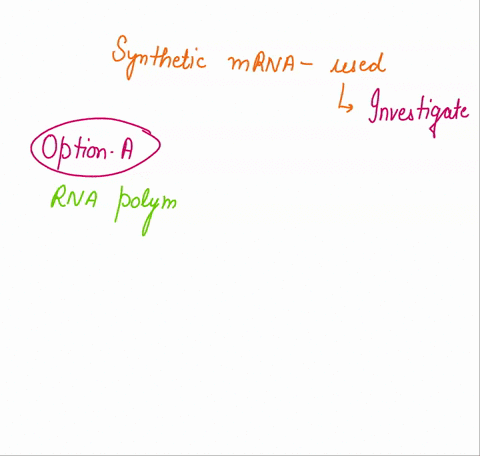 Synthetic mRNA - used
↳ Investigate
Option-A
RNA polym